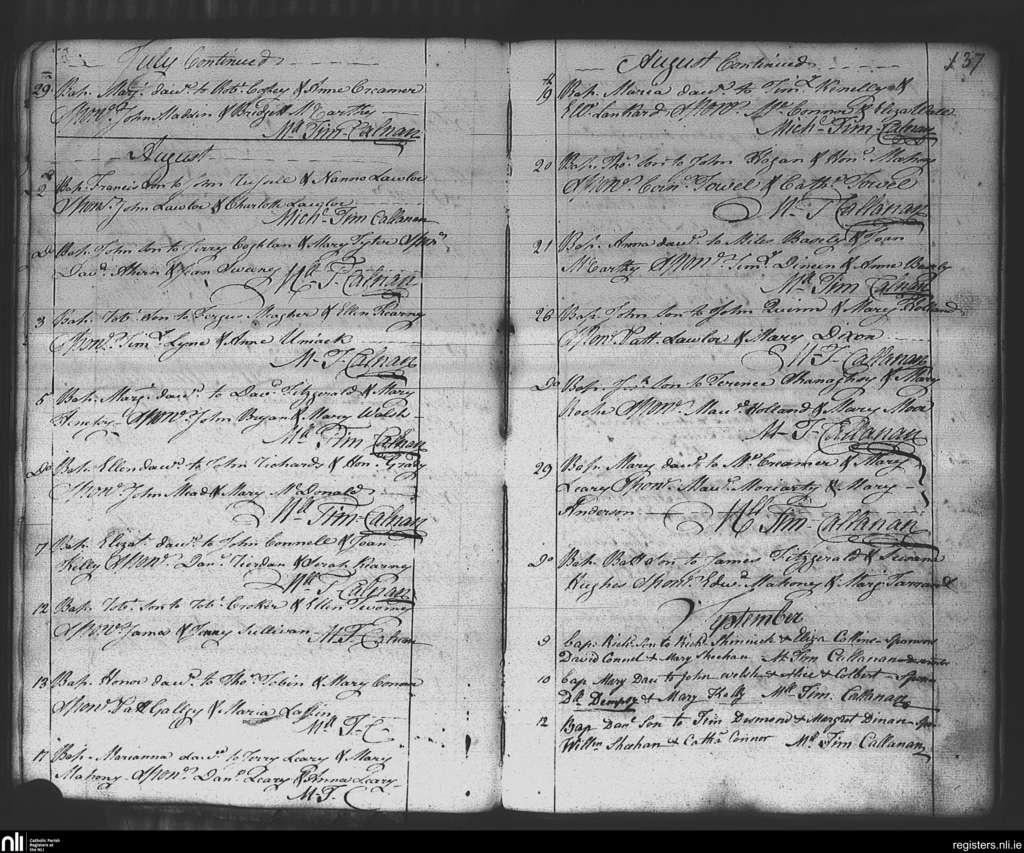 July Continued
29 Bap. Mary dawr. to Robt. Copley & Anne Creamer
Sponr. John Maddin & Bridgett McCarthy
Mll Tim Calnan
August
2 Bap. Francis Son to John & Nanno Lawlor
Sponr. John Lawlor & Charlott Lawlor
Michl. Tim Callanan
Do Bap. John Son to Terry Coghlan & Mary Sponr.
Davd. Ahern & Joan Sweeny Mll T. Calnan
3 Bap. Son to Fergus Meagher & Ellen Kearny
Sponr. Timy. Lyne & Anne
M. T. Calnan
5 Bap. Mary dawr. to Davd. Fitzgerald & Mary
Sponr. John Bryan & Mary Welsh
Mll Tim Calnan
Do Bap. Ellen dawr. to John Richards & Honr. Grady
Sponr. John Mead & Mary McDonald
Mll Tim Calnan
7 Bap. Elizat. dawr. to John Connell & Joan
Kelly Sponr. Danl. Riordan & Sarah Kearny
Mll T. Calnan
12 Bap. Robt. Son to Robt. Croker & Ellen Twomy
Sponr. James & Jenny Sullivan M. T. Calnan
13 Bap. Honor dawr. to Thos. Tobin & Mary Connor
Sponr. Patt & Maria
Mll T. C
17 Bap. Marianna dawr. to Jerry Leary & Mary
Mahony Sponr. Danl. Leary & Anna Leary
M. T. C
August Continued
137
19 Bap. Maria dawr. to Timy. Kinelly &
Lanhard Sponr. Connor & Eliza
Michl. Tim Calnan
20 Bap. Thos. Son to John Hogan & Honr. Mahony
Sponr. Corns. Towel & Cathe. Towel
M. T Callanan
21 Bap. Anna dawr. to Miles & Joan
McCarthy Sponr. Timy. Dineen & Anne
Mll Tim Calnan
26 Bap. John Son to John Quinn & Mary Holland
Sponr. Patt. Lawlor & Mary Dixon
M. T. Callanan
Do Bap. Son to Terence & Mary
Roche Sponr. Maud. Holland & Mary
M. T. Callanan
29 Bap. Mary dawr. to Creamer & Mary
Leary Sponr. Moriarty & Mary
Anderson Mll Tim Callanan
Do Bap. Batt Son to James Fitzgerald &
Hughes Sponr. Edwd. Mahony & Mary
September
9 bap. Richd. Son to Richd. & Eliza Collins Sponsors
David Connel & Mary Sheehan M. Tim Callanan
10 bap Mary Daur to John Welsh & Alice Colbert Sponr
Dempsy & Mary Kelly Mll Tim. Callanan
12 Bap Danl. Son to Tim Desmond & Margret Dinan Spr
Willm Shehan & Catha Connor Mll Tim Callanan
nli Catholic Parish
Registers at
the NLI
registers.nli.ie